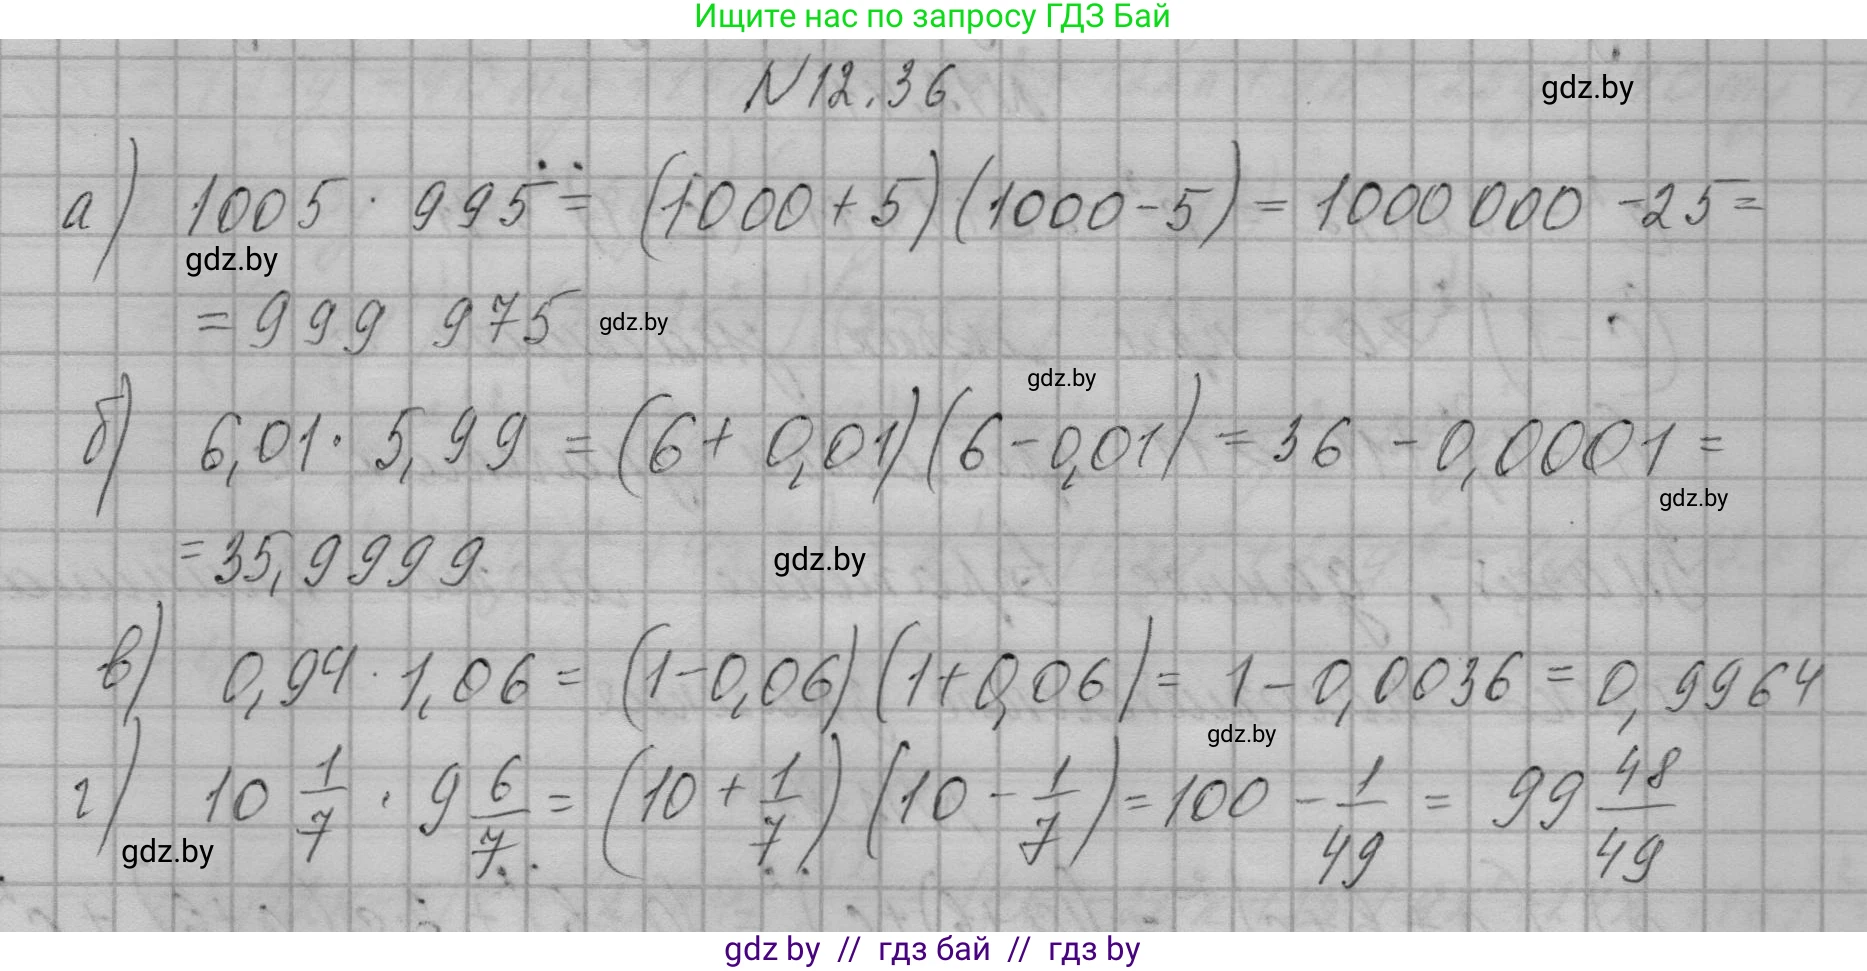 Ищите нас по запросу ГДЗ Бай
N 12.36
gdz.by
а) 1005 · 995 = (1000 + 5)(1000 - 5) = 1000 000 - 25 =
gdz.by
= 999 975
gdz.by
gdz.by
б) 6,01 · 5,99 = (6 + 0,01)(6 - 0,01) = 36 - 0,0001 =
gdz.by
= 35,9999
gdz.by
в) 0,94 · 1,06 = (1 - 0,06)(1 + 0,06) = 1 - 0,0036 = 0,9964
gdz.by
г) 10 1/7 · 9 6/7 = (10 + 1/7)(10 - 1/7) = 100 - 1/49 = 99 48/49
gdz.by
gdz by // гдз бай // гдз by